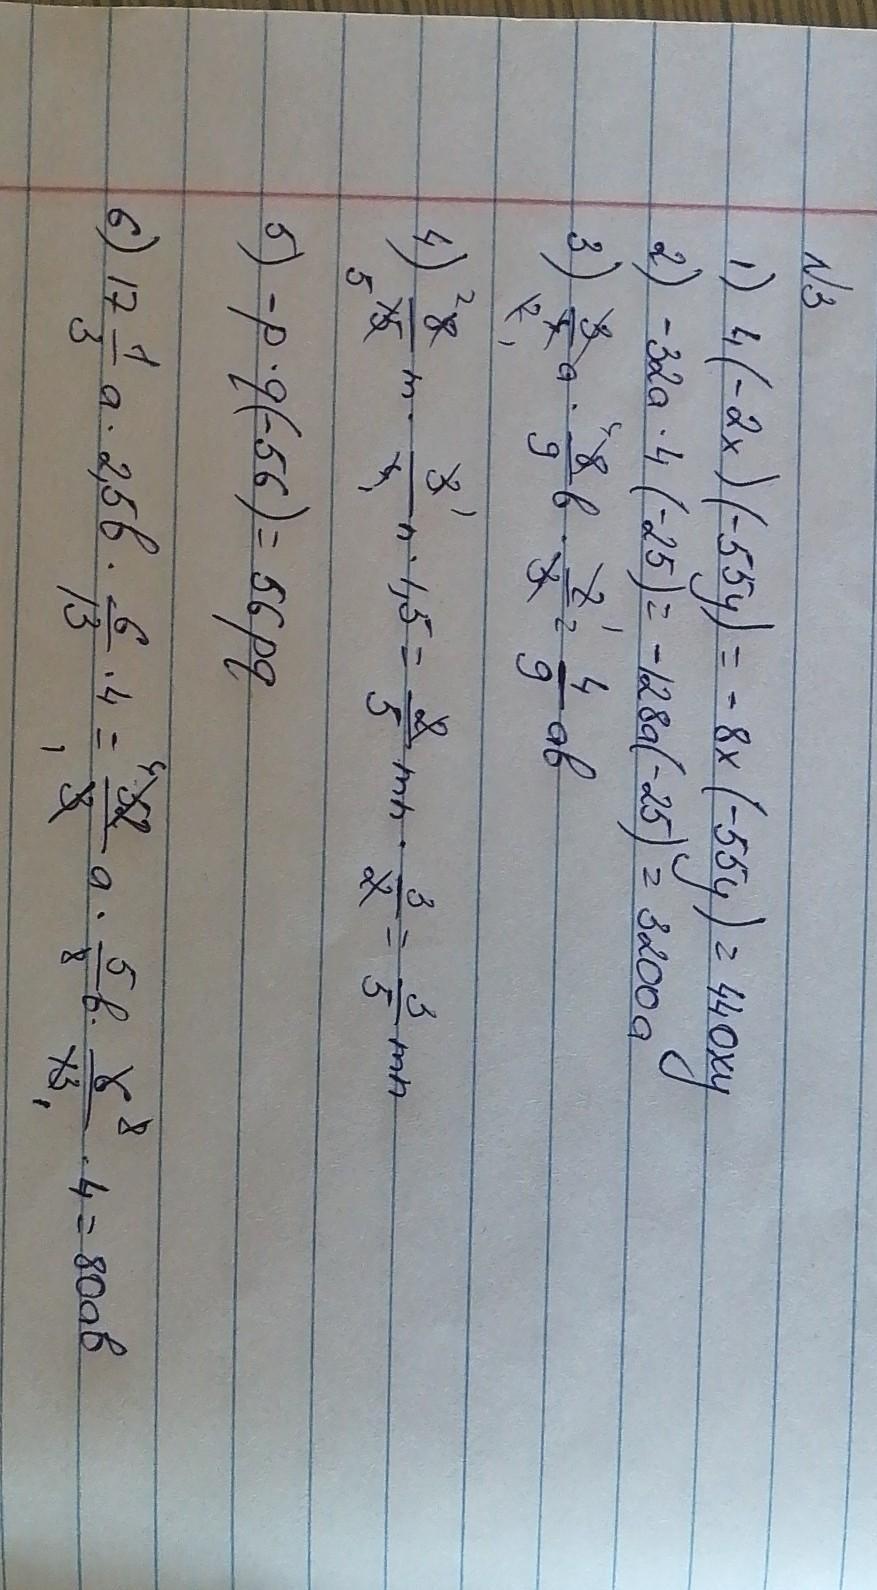 №3
1) 4(-2x)(-55y) = -8x(-55y) = 440xy
2) -32a · 4(-25) = -128a(-25) = 3200a
3) 3/4 a · 8/9 b · 2/3 = 4/9 ab
4) 8/15 m · 3/4 n · 1,5 = 2/5 mn · 3/2 = 3/5 mn
5) -p · q(-56) = 56pq
6) 17 1/3 a · 2,5b · 6/13 · 4 = 52/3 a · 5/2 b · 6/13 · 4 = 80ab